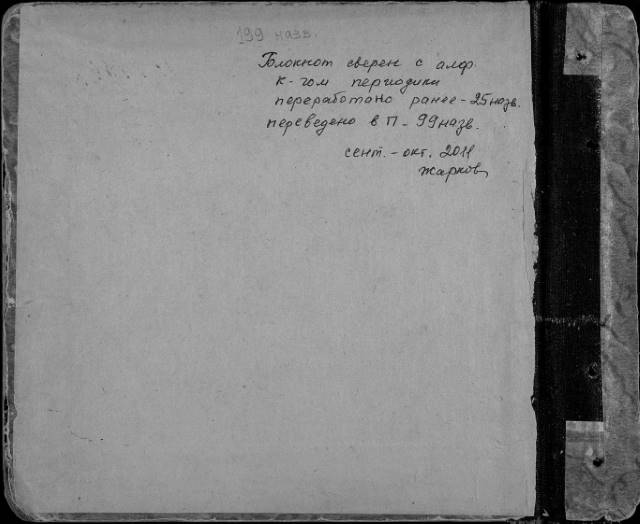 199 назв.
Блокнот сверен с алф.
к-гом периодики
переработано ранее - 25 назв.
переведено в П - 99 назв.
сент. - окт. 2011
Жарков